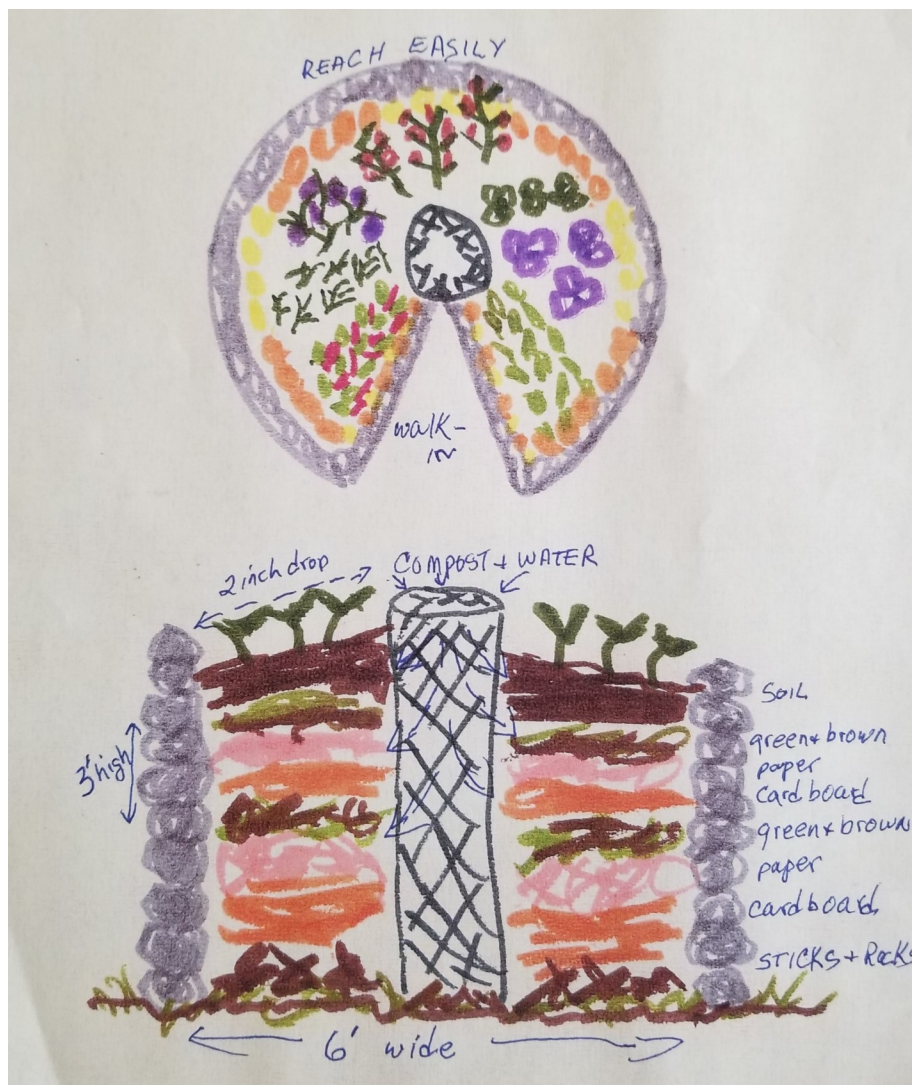 REACH EASILY
walk-
in
2 inch drop
COMPOST + WATER
3' high
SOIL
green + brown
paper
cardboard
green + brown
paper
cardboard
STICKS + Rocks
6' wide